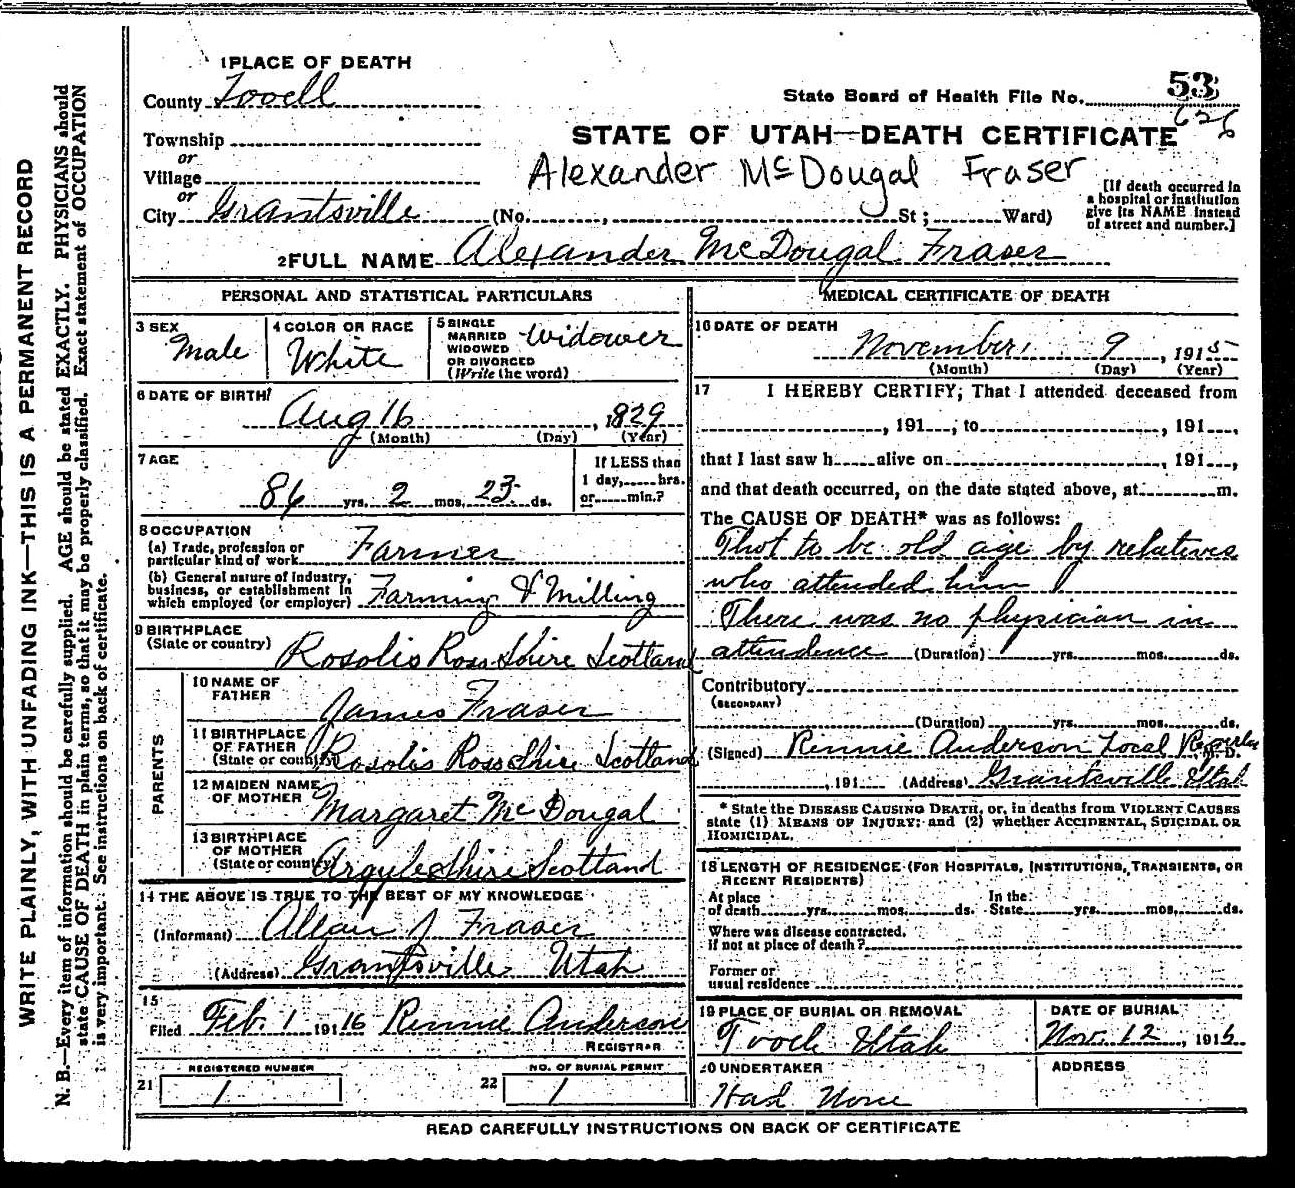 1 PLACE OF DEATH
County Tooell
State Board of Health File No. 53
626
Township
or
Village
or
City Grantsville (No. , St; Ward)
STATE OF UTAH—DEATH CERTIFICATE
Alexander McDougal Fraser
[If death occurred in
a hospital or institution
give its NAME instead
of street and number.]
2 FULL NAME Alexander McDougal Fraser
PERSONAL AND STATISTICAL PARTICULARS
3 SEX
Male
4 COLOR OR RACE
White
5 SINGLE
MARRIED
WIDOWED
OR DIVORCED
(Write the word)
Widower
6 DATE OF BIRTH
Aug 16, 1829
(Month) (Day) (Year)
7 AGE
86 yrs. 2 mos. 23 ds.
If LESS than
1 day, hrs.
or min.?
8 OCCUPATION
(a) Trade, profession or
particular kind of work Farmer
(b) General nature of industry,
business, or establishment in
which employed (or employer) Farming & Milling
9 BIRTHPLACE
(State or country)
Rosolis Ross Shire Scotland
PARENTS
10 NAME OF
FATHER
James Fraser
11 BIRTHPLACE
OF FATHER
(State or country)
Rosolis Ross Shire Scotland
12 MAIDEN NAME
OF MOTHER
Margaret McDougal
13 BIRTHPLACE
OF MOTHER
(State or country)
Argyleshire Scotland
14 THE ABOVE IS TRUE TO THE BEST OF MY KNOWLEDGE
(Informant) Allan J Fraser
(Address) Grantsville Utah
15
Filed Feb. 1 191 16 Rennie Anderson
REGISTRAR
21 REGISTERED NUMBER
1
22 NO. OF BURIAL PERMIT
1
MEDICAL CERTIFICATE OF DEATH
16 DATE OF DEATH
November 9, 1915
(Month) (Day) (Year)
17 I HEREBY CERTIFY, That I attended deceased from
, 191 , to , 191 ,
that I last saw h alive on , 191 ,
and that death occurred, on the date stated above, at m.
The CAUSE OF DEATH* was as follows:
Thot to be old age by relatives
who attended him
There was no physician in
attendence (Duration) yrs. mos. ds.
Contributory
(SECONDARY)
(Duration) yrs. mos. ds.
(Signed) Rennie Anderson Local M. D.
, 191 (Address) Grantsville Utah
* State the DISEASE CAUSING DEATH, or, in deaths from VIOLENT CAUSES
state (1) MEANS OF INJURY; and (2) whether ACCIDENTAL, SUICIDAL OR
HOMICIDAL.
18 LENGTH OF RESIDENCE (FOR HOSPITALS, INSTITUTIONS, TRANSIENTS, OR
RECENT RESIDENTS)
At place
of death yrs. mos. ds.
In the
State yrs. mos. ds.
Where was disease contracted,
if not at place of death?
Former or
usual residence
19 PLACE OF BURIAL OR REMOVAL
Tooele Utah
DATE OF BURIAL
Nov. 12, 1915
20 UNDERTAKER
Had None
ADDRESS
READ CAREFULLY INSTRUCTIONS ON BACK OF CERTIFICATE
WRITE PLAINLY, WITH UNFADING INK—THIS IS A PERMANENT RECORD
N. B.—Every item of information should be carefully supplied. AGE should be stated EXACTLY. PHYSICIANS should
state CAUSE OF DEATH in plain terms, so that it may be properly classified. Exact statement of OCCUPATION
is very important. See instructions on back of certificate.